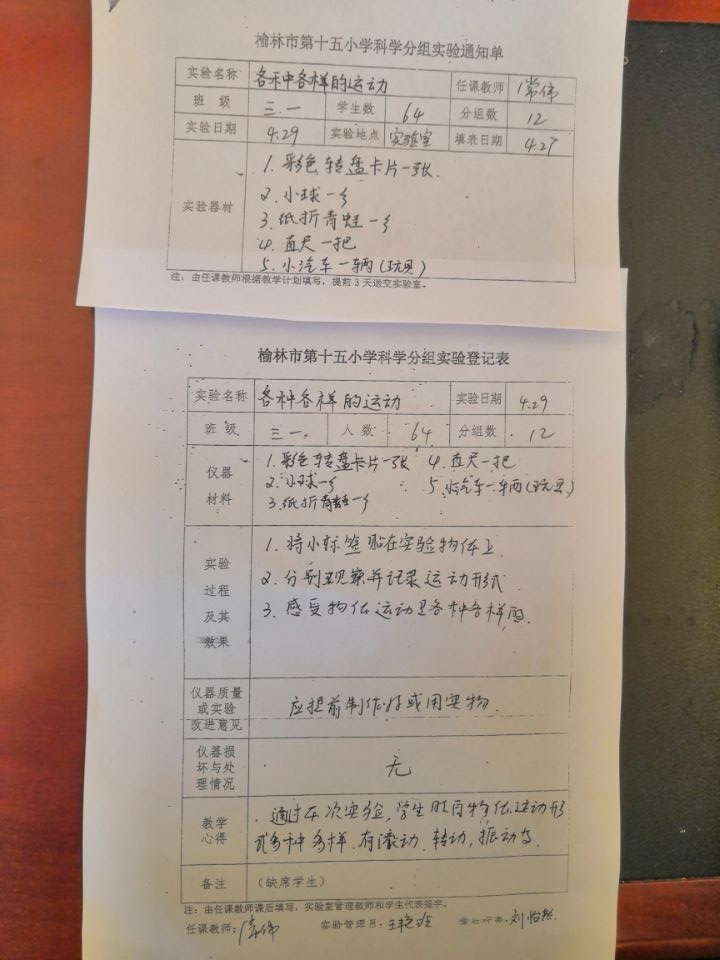 榆林市第十五小学科学分组实验通知单
实验名称 各种各样的运动 任课教师 常伟
班 级 三.一 学生数 64 分组数 12
实验日期 4.29 实验地点 实验室 填表日期 4.27
实验器材
1. 彩色转盘卡片一张.
2. 小球一个
3. 纸折青蛙一个
4. 直尺一把
5. 小汽车一辆(玩具)
注：由任课教师根据教学计划填写，提前3天送交实验室。
榆林市第十五小学科学分组实验登记表
实验名称 各种各样的运动 实验日期 4.29
班 级 三一 人 数 64 分组数 12
仪器
材料
1. 彩色转盘卡片一张 4. 直尺一把
2. 小球一个 5. 小汽车一辆(玩具)
3. 纸折青蛙一个
实验
过程
及其
效果
1. 将小标签贴在实验物体上
2. 分别观察并记录运动形式
3. 感受物体运动是各种各样的.
仪器质量
或实验
改进意见
应提前制作好或用实物.
仪器损
坏与处
理情况
无
教学
心得
通过本次实验,学生明白物体运动形
式多种多样.有滚动.转动,振动等.
备注 （缺席学生）
注：由任课教师课后填写，实验室管理教师和学生代表签字。
任课教师：常伟 实验管理员：王艳玲 学生代表：刘怡然